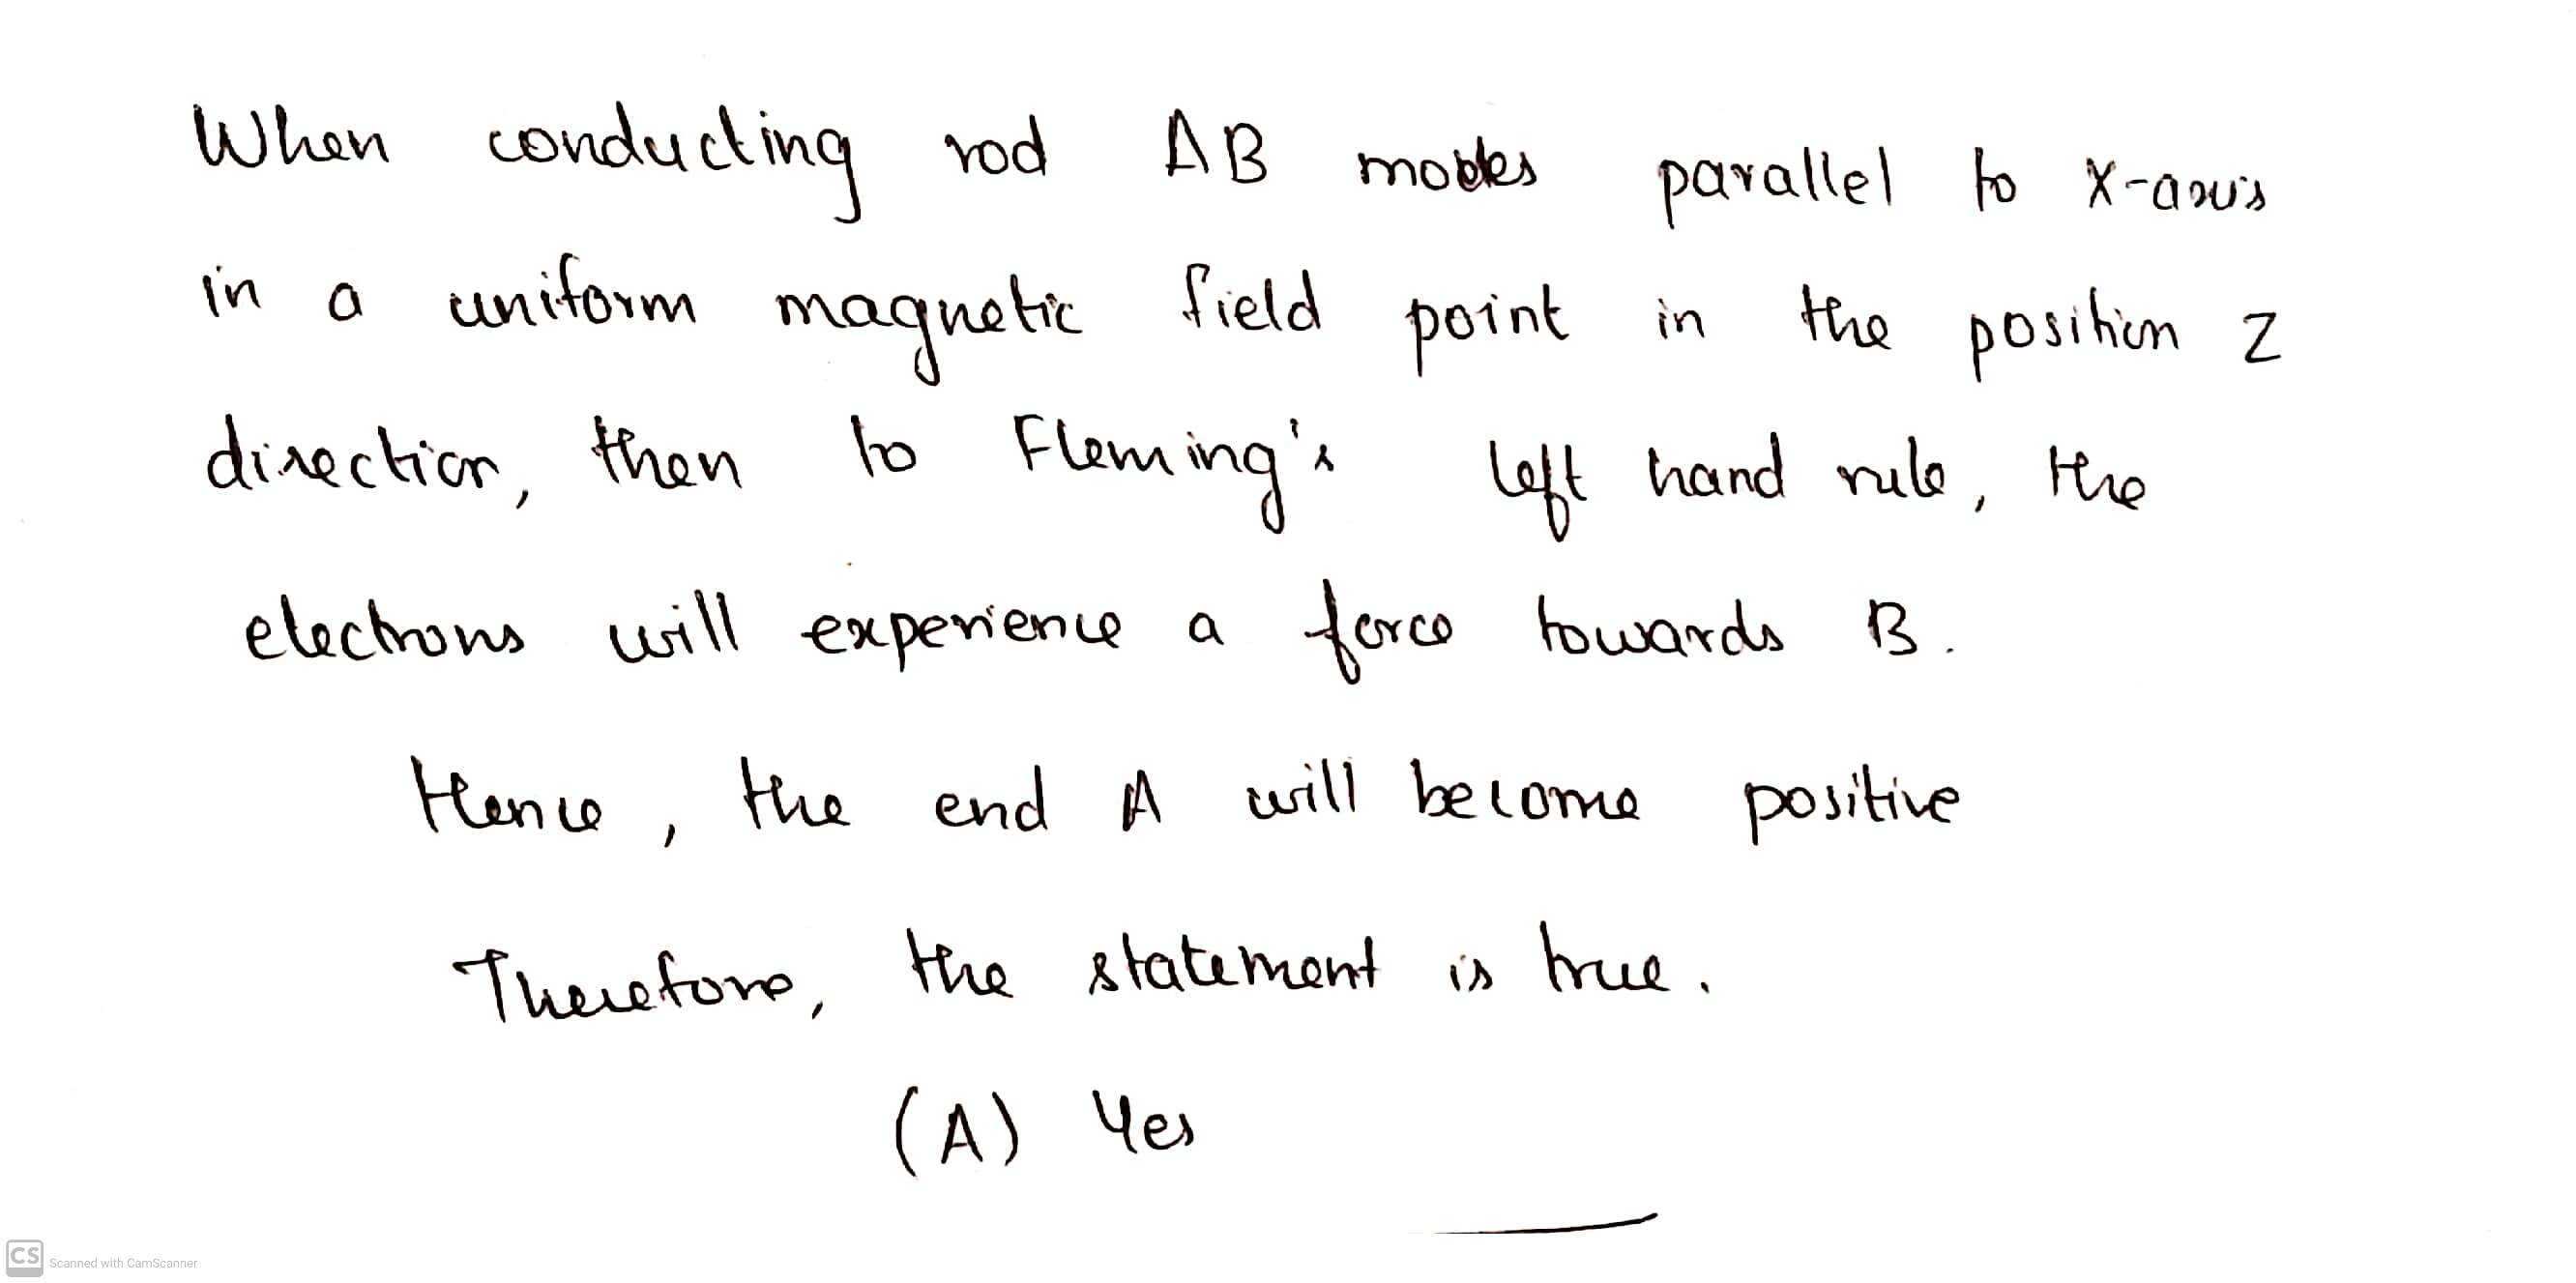 When conducting rod AB moves parallel to x-axis
in a uniform magnetic field point in the position z
direction, then to Fleming's left hand rule, the
electrons will experience a force towards B.
Hence, the end A will become positive
Therefore, the statement is true.
(A) Yes
CS Scanned with CamScanner